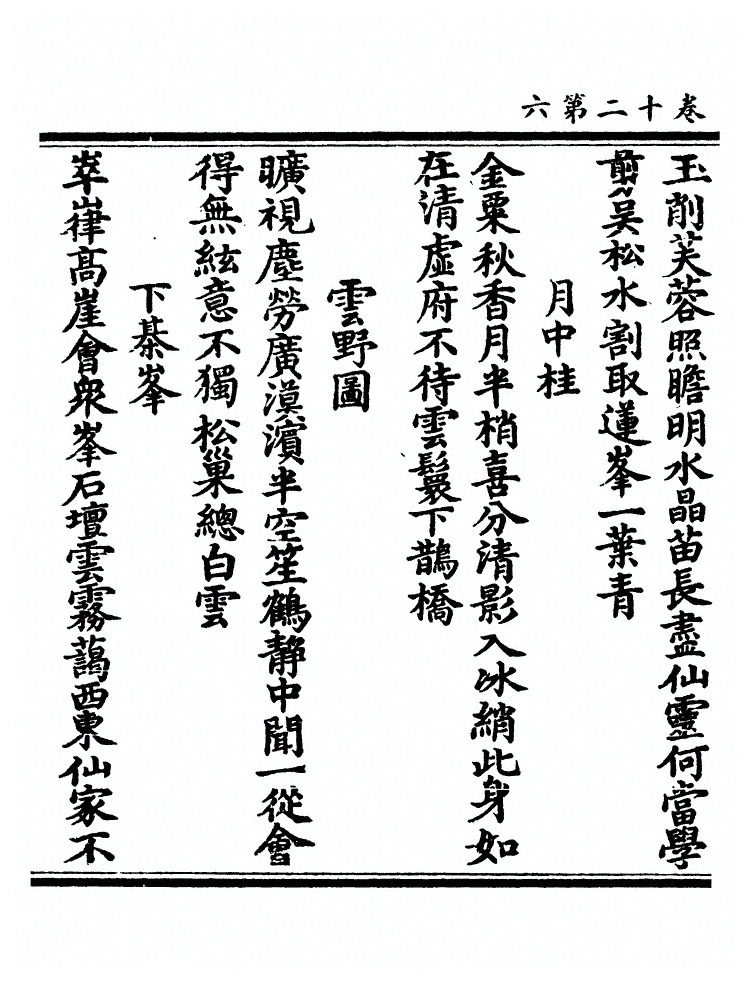 六第二十卷
玉削芙蓉照瞻明水晶苗長盡仙靈何當學
剪吳松水割取蓮峯一葉青
月中桂
金粟秋香月半梢喜分清影入冰綃此身如
在清虛府不待雲鬟下鵲橋
雲野圖
曠視塵勞廣漠濱半空笙鶴靜中聞一從會
得無絃意不獨松巢總白雲
下棊峯
崒嵂高崖會衆峯石壇雲霧藹西東仙家不